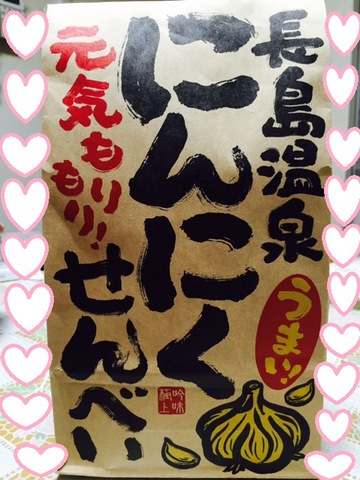 長島温泉
にんにく
せんべい
元気もりもり!
うまい!
吟味
極上